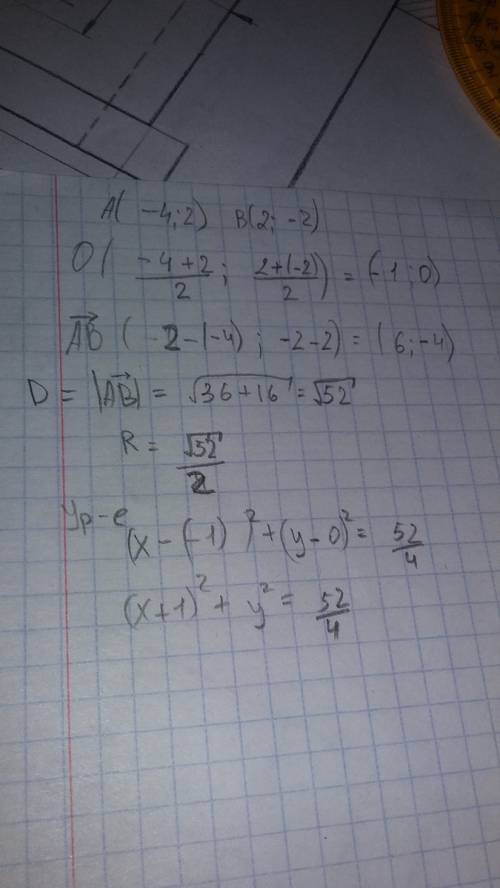 A( -4; 2) B(2; -2)
O( (-4+2)/2 ; (2+(-2))/2 ) = (-1; 0)
AB ( 2-(-4) ; -2-2) = (6; -4)
D = |AB| = √36+16 = √52
R = √52/2
Ур-е
(x-(-1))²+(y-0)² = 52/4
(x+1)²+ y² = 52/4